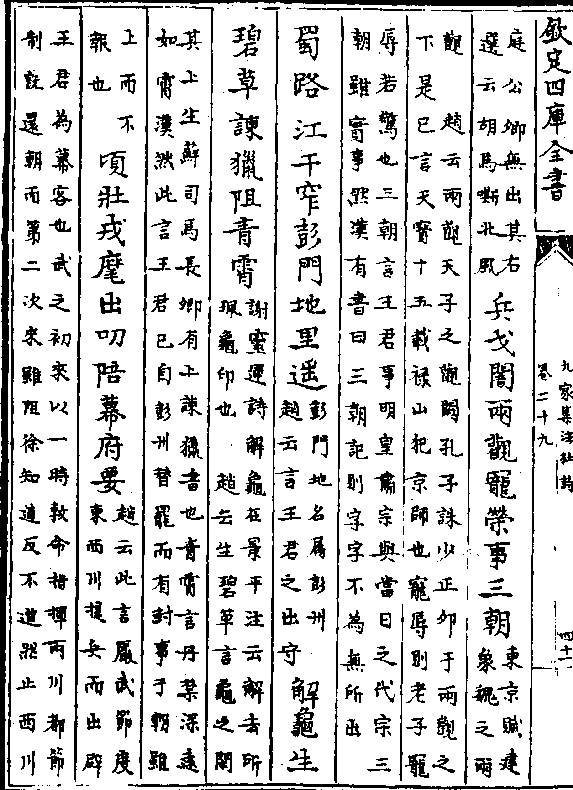 欽定四庫全書
九家集注杜詩
卷二十九
四十一
庭公卿無出其右
選云胡馬嘶北風
兵戈闇兩觀寵榮事三朝
東京賦建
象魏之兩
觀 趙云兩觀天子之觀闕孔子誅少正卯于兩觀之
下是已言天寳十五載禄山犯京師也寵辱則老子寵
辱若驚也三朝言王君事明皇肅宗與當日之代宗三
朝雖實事然漢有書曰三朝記則字字不為無所出
蜀路江干窄彭門地里遥
彭門地名屬彭州
趙云言王君之出守
解龜生
碧草諫獵阻青霄
謝靈運詩解龜在景平注云解去所
珮龜印也 趙云生碧草言龜之閒
其上生蘚司馬長卿有上諫獵書也青霄言丹禁深遠
如霄漢然此言王君已自彭州替罷而有封事于朝雖
上而不
報也
頃壯戎麾出叨陪幕府要
趙云此言嚴武節度
東西川擁兵而出辟
王君為幕客也武之初來以一時敕命指揮兩川都節
制旣還朝而第二次來雖阻徐知道反不道然止西川